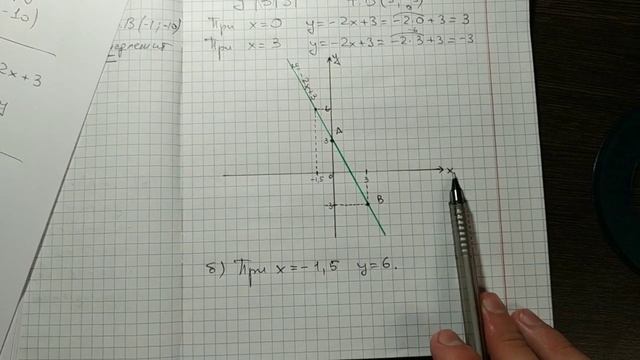 -10)
2x+3
y
т. В (-1; -10)
При x=0 y=-2x+3=-2·0+3=3
При x=3 y=-2x+3=-2·3+3=-3
-6
y
y=-2x+3
6
A
3
x
-1,5
0
3
-3
B
б) При x=-1,5 y=6.